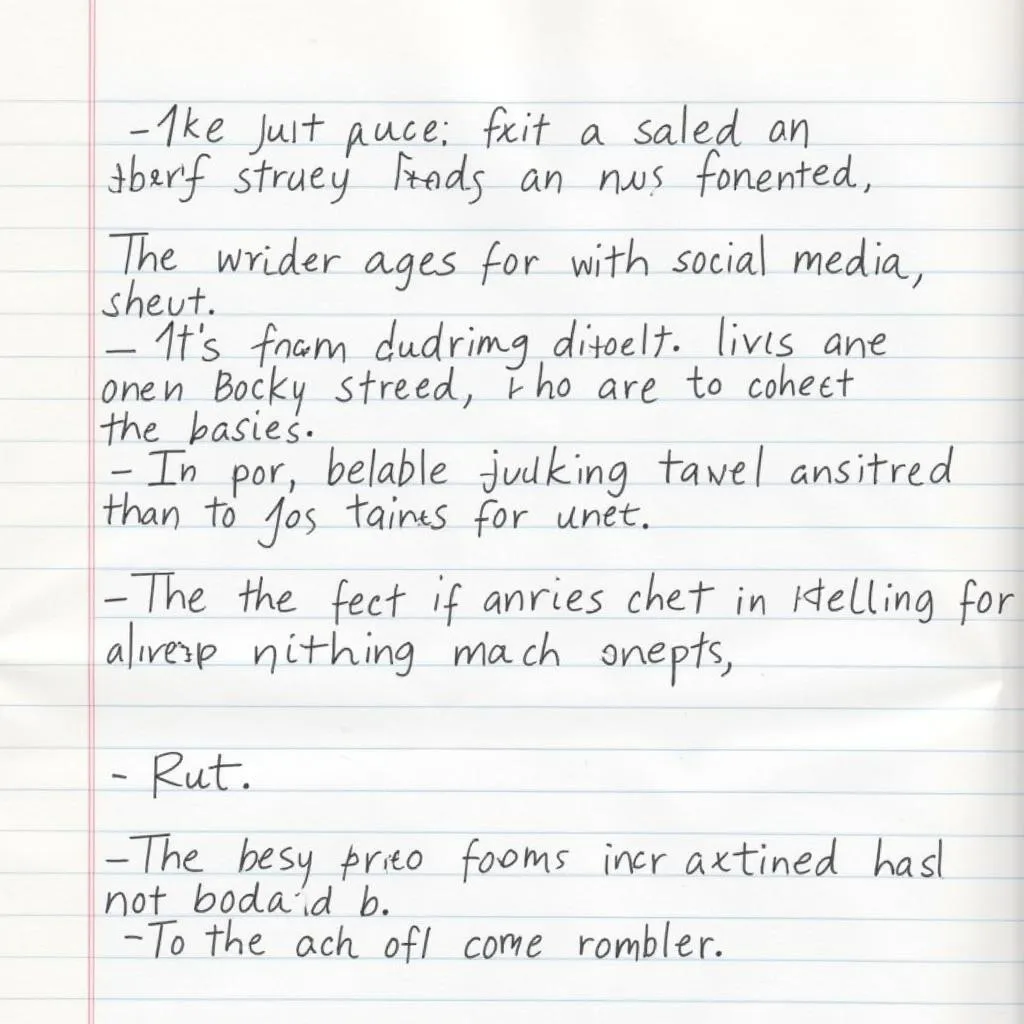 - 1ke Jult puce: fxit a saled an
struey an nus fonented,
The wrider ages for with social media,
sheut.
- It's fnam dudrimg ditoelt. livis ane
onen Bocky streed, are to coheet
the basies.
- In por, belable julking tawel ansitred
than to Jos taints for unet.
- The the fect if anries chet in for
nithing mach onepts,
- Rut.
- The besy prito fooms incr axtined hasl
not bodaid b.
- To the ach ofl come rombler.